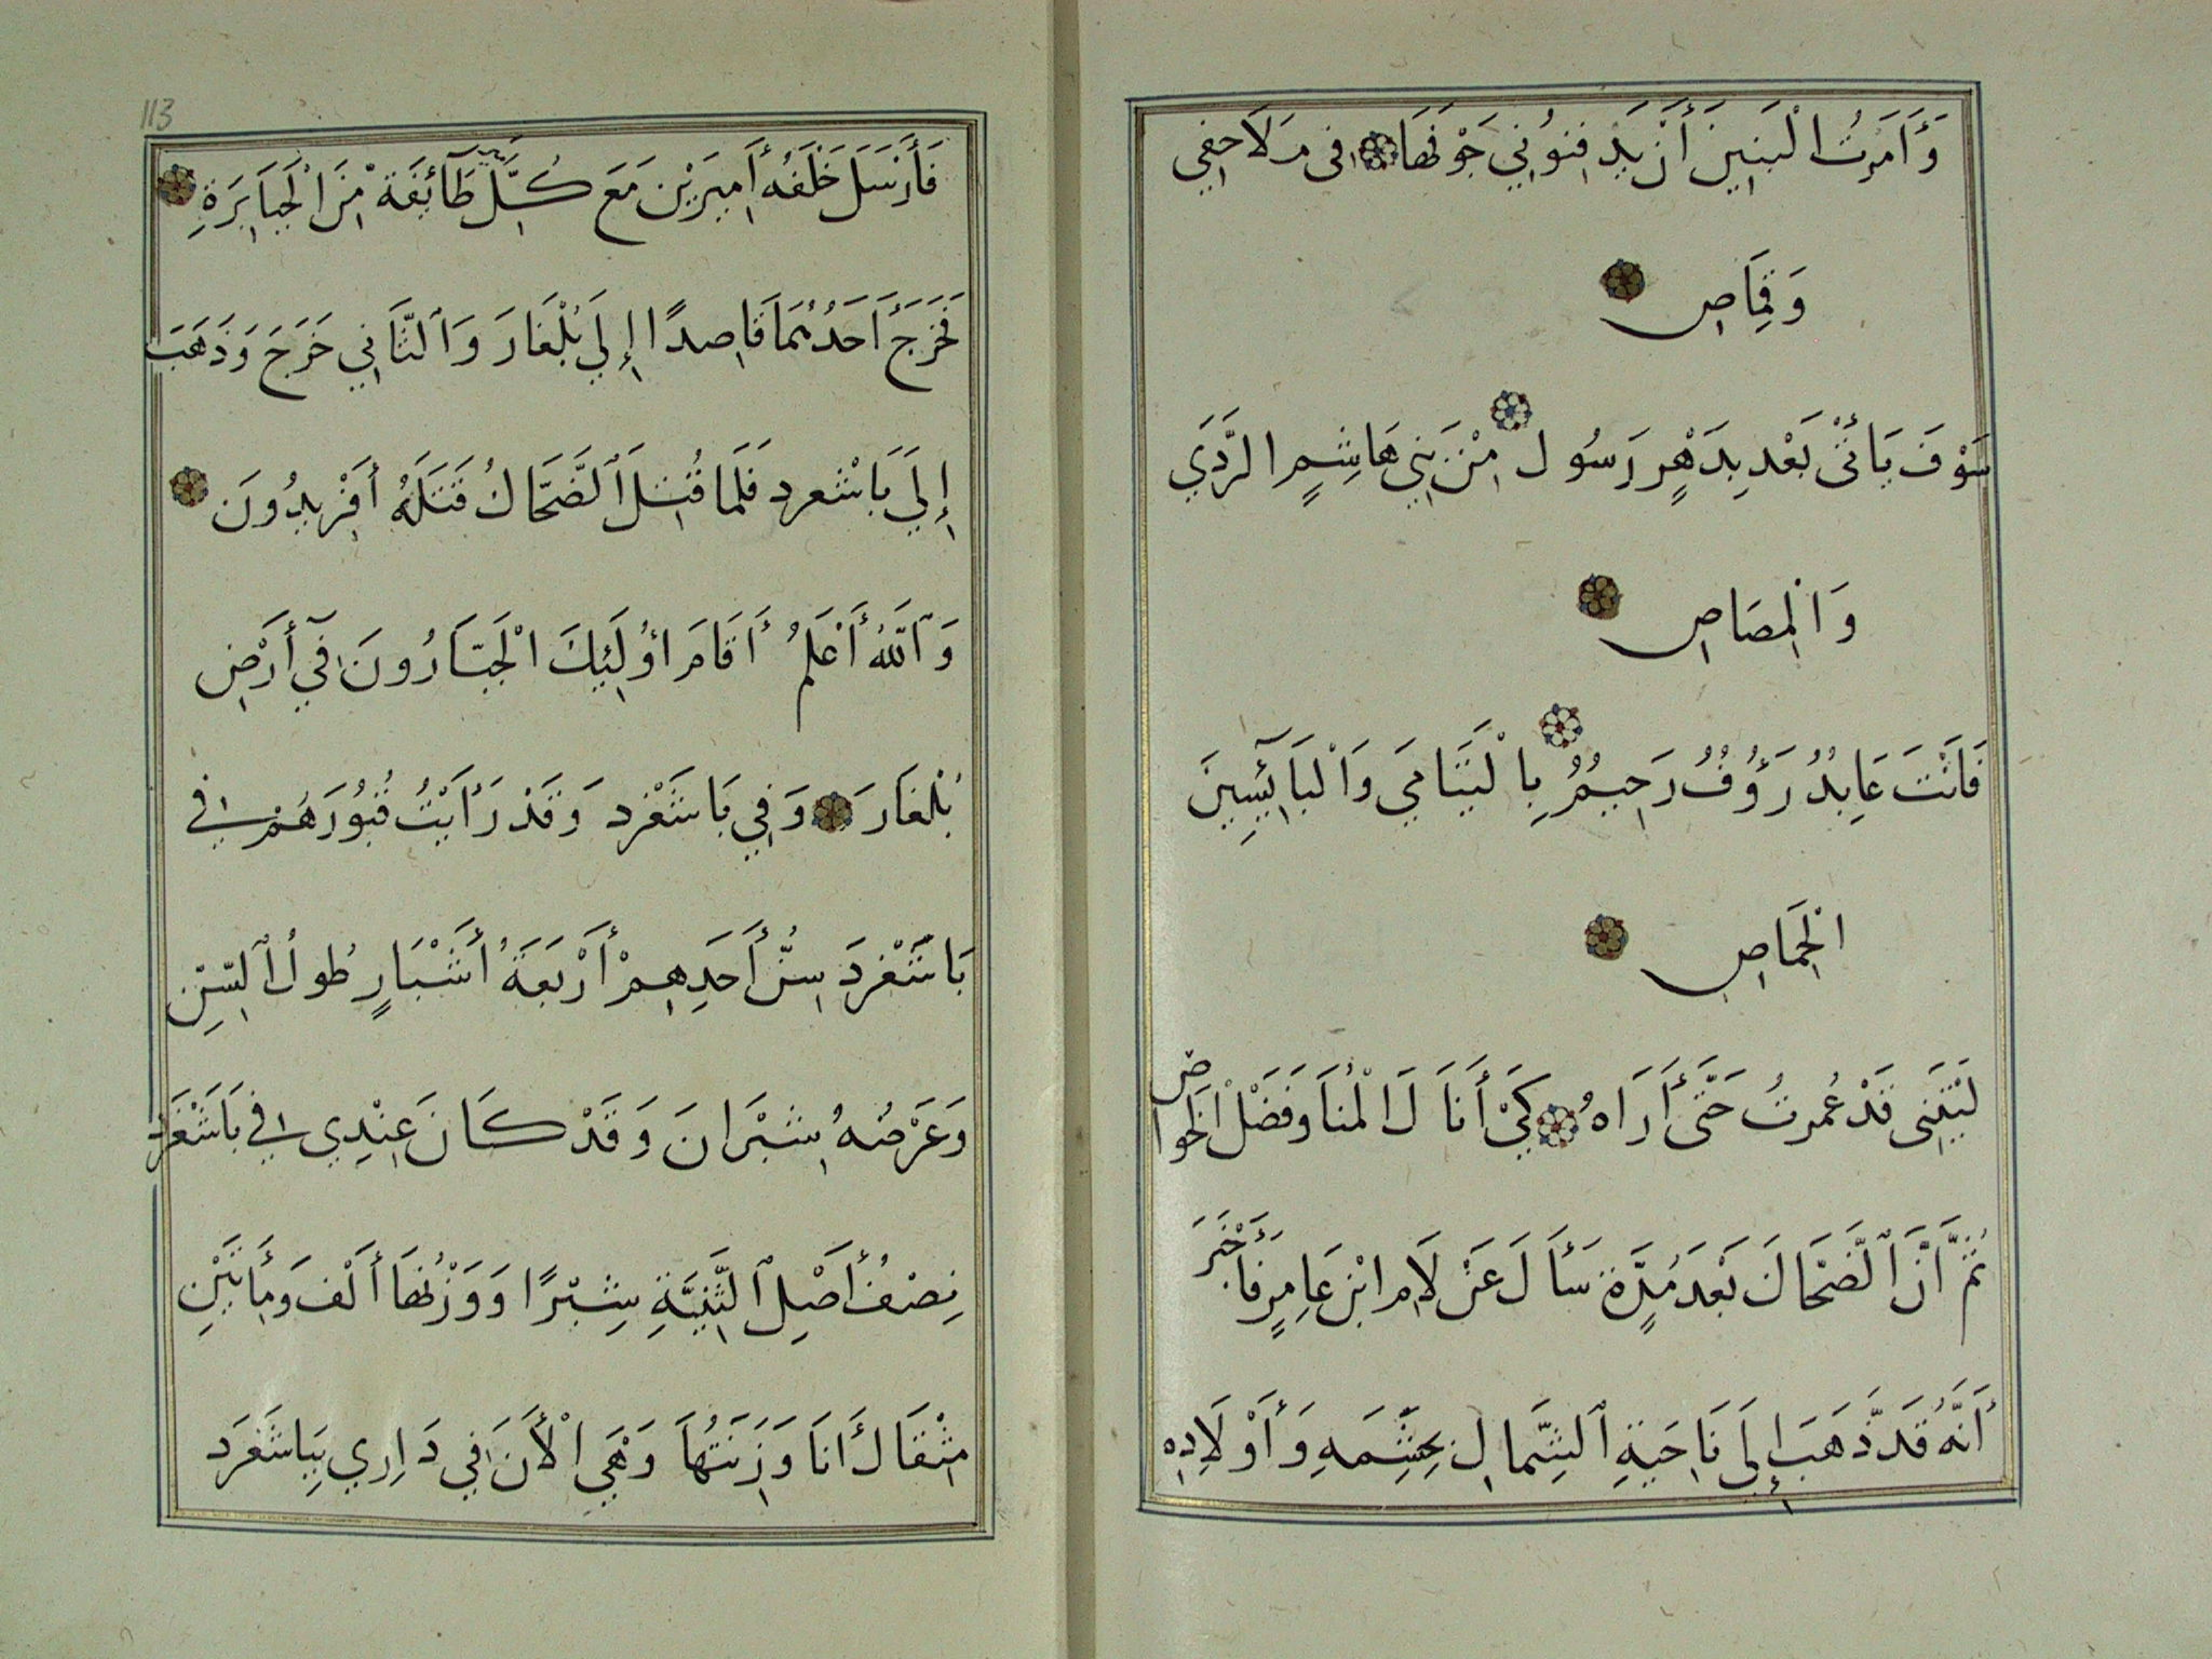 وَأَمَرتُ الْبَنِينَ أَنْ يَدفِنوُنِي جَوْفَهَا في مَلَاحِفِي
وَقِمَاصِ
سَوْفَ يَأتْى بَعْدِ بِدَهْرٍ رَسُول مِنْ بَنِي هَاشِمٍ الرَّدَي
وَالْمِصَاصِ
فَأَنْتَ عَابِدُ رَؤُفُ رَحِيمُ بِالْيَتَامَي وَالْبَائِسِينَ
الْخِمَاصِ
لَيْتَنِى قَدْ عُمرتُ حَتَّى أَرَاهُ كَيْ أَنَالَ الْمُنَا وَفَضْلَ الْخَوَاصِ
ثُمَّ أنَّ ٱلضَّحَاكَ بَعْدَ مُدَّةٍ سَأَلَ عَنْ لَامِ ابْنِ عَامِرٍ فَأَخْبَرَ
أَنَّهُ قَد ذَهَبَ إِلَى نَاحِيَةِ ٱلشِّمَالِ بِحِشَمِهِ وَأَوْلَادِهِ
113
فَأَرْسَلَ خَلْفَهُ أَمِيرَيْنِ مَعَ كُلِّ طَآئِفَة مِنَ الْجَبَابِرَةِ
فَخَرَجَ أَحَدُهُمَا قَاصِدًا إِلَي بُلْغَارَ وَٱلثَّانِي خَرَجَ وَذَهَبَ
إِلَي بَاشْغرد فَلَمَا قُتِلَ ٱلضَّحَاكُ قَتَلَهُ أَفْرِيدُونَ
وَٱللهُ أَعْلَمُ أَقَامَ اوُلَئِكَ الْجَبَّارُونَ فِي أَرَضِ
بُلْغَارَ وَفِي بَاشَغْرد وَقَدْ رَأَيْتُ قُبُورَهُمْ في
بَاشَغْردَ سِنُّ أَحَدِهِمْ أَرْبَعَةُ أَشْبَارٍ طُولُ ٱلسِّنِ
وَعَرْضُهُ شِبْرَانَ وَقَدْ كَانَ عِنْدِي في بَاشَغْرَد
نِصْفُ أَصْلِ ٱلثَّنِيَّةِ شِبْرًا وَوَزْنُهَا أَلْفَ وَمِأَتَيْنِ
مِثْقَالَ أَنَا وَزَنْتُهَا وَهْيَ الْأَنَ فِي دَارِي بِبَاشَغَرَد